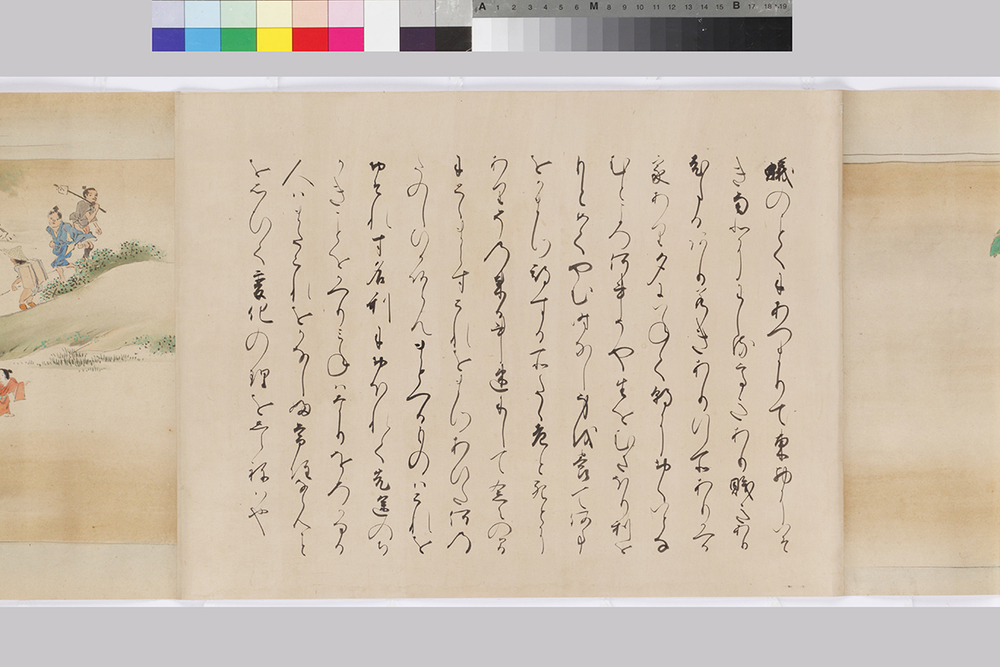 A 1 2 3 4 5 6 M 8 9 10 11 12 13 14 15 B 17 18 19
蟻のことくにあつまりて東西にいそ
き南北にわしる高きあり賤きあり
老たるあり若きあり行所あり帰る
家あり夕にいねて朝におくいとな
む所何事そや生をむさほり利を
もとめてやむ時なし身を養て何事
をかまつ期する所たゝ老と死とに
ありその来る事速にして念々の間
にとゝまらすこれをまつあひた何の
たのしひかあらんまとへるものはこれを
おそれす名利におほれて先途のち
かきことをかへりみねはなりをろかなる
人はまたこれをかなしふ常住ならんこと
をおもひて変化の理をしらねはや